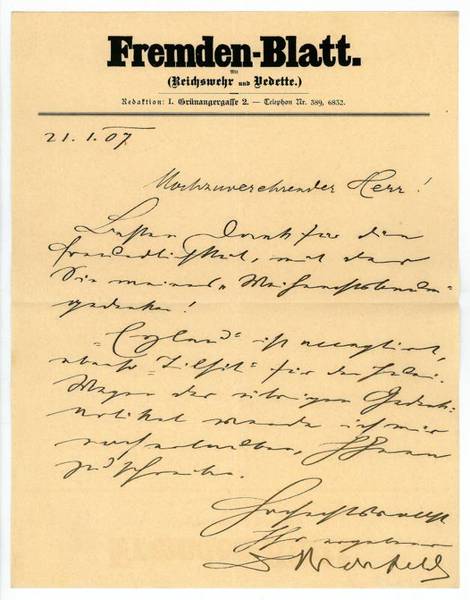 Fremden-Blatt.
Mit
(Reichswehr und Vedette.)
Redaktion: I. Grünangergasse 2. — Telephon Nr. 389, 6832.
21. 1. 07.
Hochzuverehrender Herr!
Besten Dank für die
Freundlichkeit, mit der
Sie meines „Weihnachtsbaum"
gedenken!
„Eylau" ist acceptirt,
ebenso „Tilsit" für den Juli.
Wegen der übrigen Gedenk-
artikel werde ich mir
erlauben, Ihnen
zu schreiben.
Hochachtungsvoll
Ihr ergebener